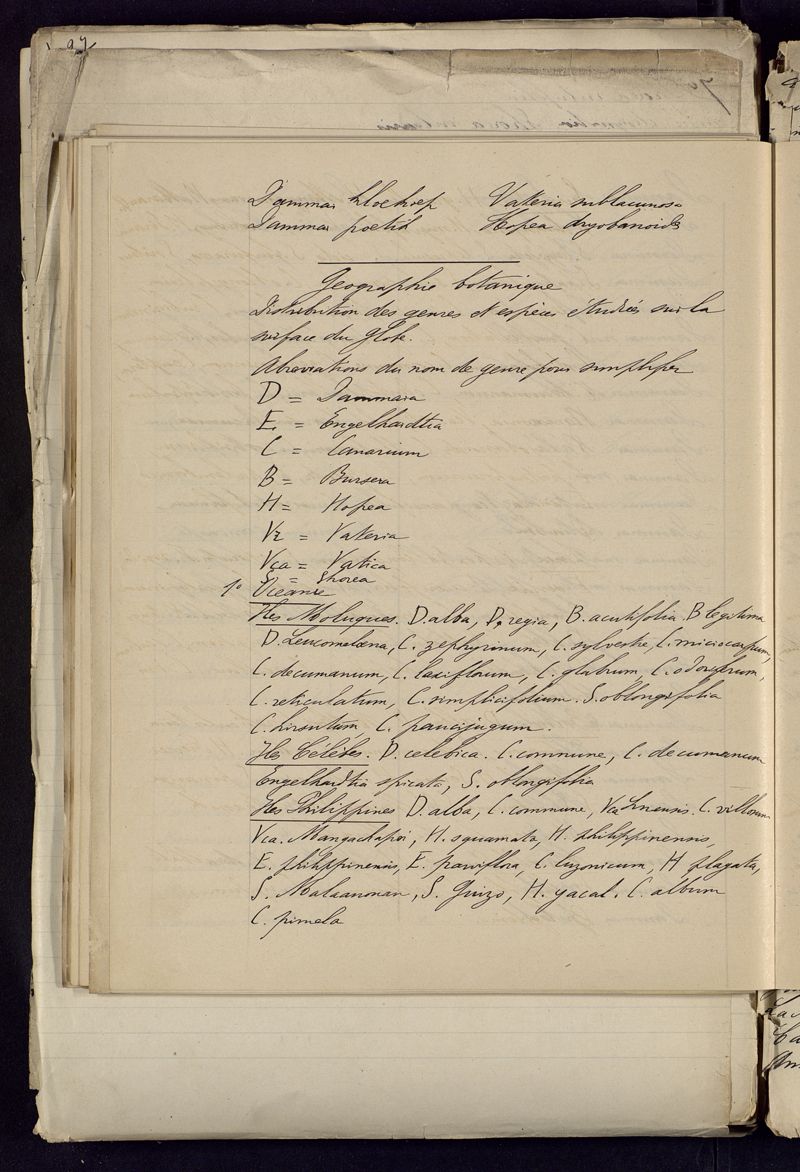 Dammar Vateria sublacunosa
Dammar poetih Hopea dryobanoides
Geographie botanique
Distribution des genres et espèces étudiés sur la
surface du globe.
Abreviations du nom de genre pour simplifier
D = Dammara
E = Engelhardtia
C = Canarium
B = Bursera
H = Hopea
Va = Vateria
Vca = Vatica
S = Shorea
1º Oceanie
Iles Moluques. D. alba, D. regia, B. acutifolia. B legitima
D. Leucomelaena, C. zephyrinum, C. sylvestre, C. microcarpum,
C. decumanum, C. laxiflorum, C. glabrum, C. odoriferum,
C. reticulatum, C. simplicifolium. S. oblongifolia
C. hirsutum, C. paucijugum.
Iles Célèbes. D. celebica. C. commune, C. decumanum
Engelhardtia spicata, S. oblongifolia
Iles Philippines D. alba, C. commune, Vca C. villosum
Vca. Mangachapoi, H. squamata, H. philippinensis,
E. philippinensis, E. parviflora, C. luzonicum, H plagata,
S. Malaanonan, S. Guizo, H. yacal. C. album
C. pimela